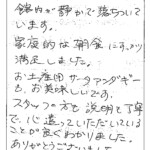 館内が静かで落ちついて
います。
家庭的な朝食に
満足しました。
お土産用サーターアンダギー
も、お美味しいです。
スタッフの方も説明も丁寧
で、心遣っていただいている
ことが良くわかりました。
ありがとうございました